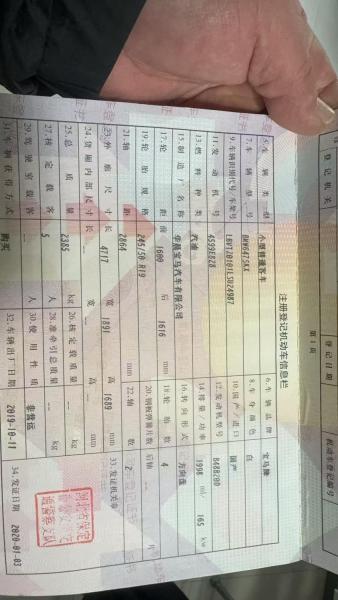 注册登记机动车信息栏
5.车辆类型 小型普通客车 6.车辆品牌 宝马牌
7.车辆型号 BMW6475KX 8.车身颜色 白
9.车辆识别代号/车架号 10.国产/进口 国产
11.发动机号 4599E828 12.发动机型号 B48B20D
13.燃料种类 汽油 14.排量/功率 1998 ml/ 165 kw
15.制造厂名称 华晨宝马汽车有限公司 16.转向形式 方向盘
17.轮距 前 1600 后 1616 mm 18.轮胎数 4
19.轮胎规格 245/50 R19 20.钢板弹簧片数 后轴 -- 片
21.轴距 2864 mm 22.轴数 2
23.外廓尺寸 长 4717 宽 1891 高 1689 mm 33.发证机关章
24.货厢内部尺寸 长 -- 宽 -- 高 -- mm
25.总质量 2385 kg 26.核定载质量 -- kg
27.核定载客 5 人 28.准牵引总质量 -- kg
29.驾驶室载客 -- 人 30.使用性质 非营运
31.车辆获得方式 购买 32.车辆出厂日期 2019-10-11 34.发证日期 2020-01-03
第1页
登记机关
登记日期
机动车登记编号